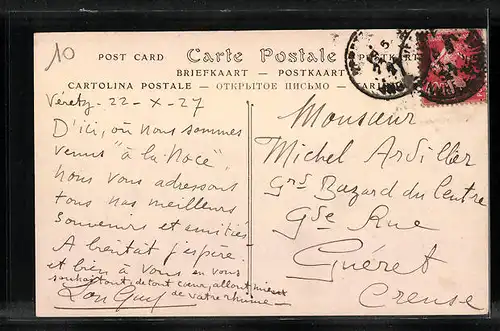 10
POST CARD
Carte Postale
POSTKART
BRIEFKAART — POSTKAART
CARTOLINA POSTALE — ОТКРЫТОЕ ПИСЬМО —
Véretz - 22-X-27
D'ici, où nous sommes
venus "à la Noce",
nous vous adressons
tous nos meilleurs
souvenirs et amitiés
A bientôt j'espère.
et bien à vous en vous
souhaitant, de tout cœur, allant mieux
de votre rhume -
Monsieur
Michel Ardillier
Grd Bazard du Centre
Gde Rue
Guéret
Creuse